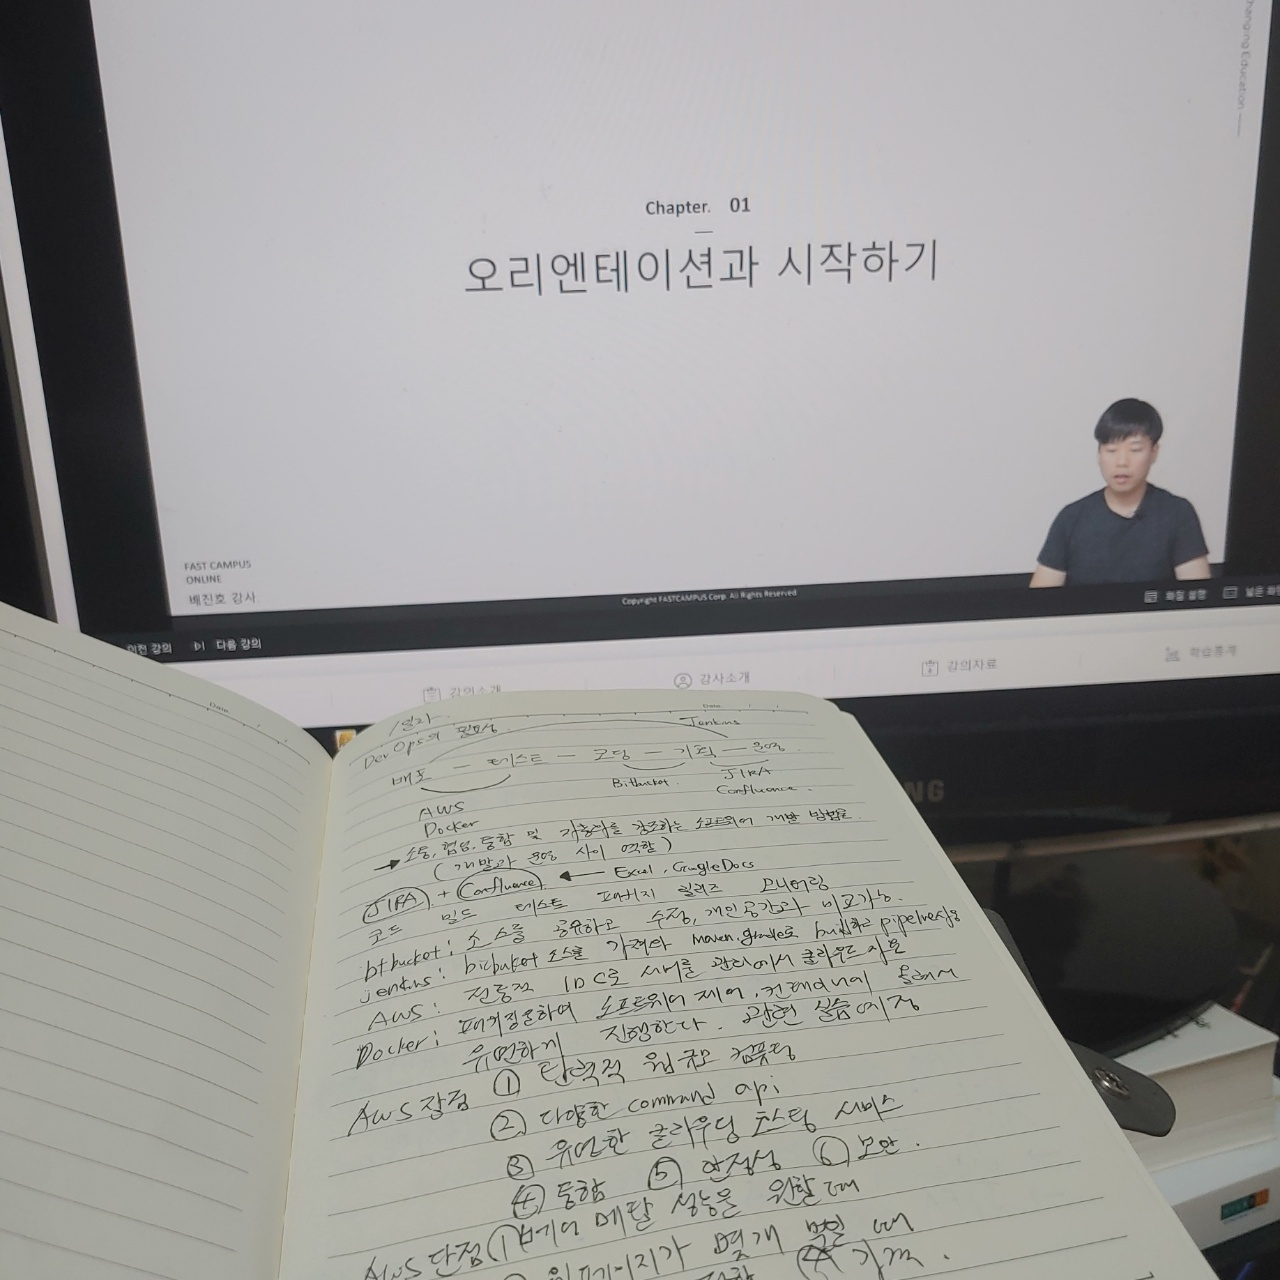 Changing Education
Chapter. 01
오리엔테이션과 시작하기
FAST CAMPUS
ONLINE
배진호 강사.
Copyright FASTCAMPUS Corp. All Rights Reserved
화질 설정
넓은 화면
이전 강의
다음 강의
강의소개
강사소개
강의자료
학습통계
Date
Date
1일차.
DevOps의 필요성.
Jenkins
배포 — 테스트 — 코딩 — 기획 — 운영.
Bitbucket.
JIRA
Confluence.
AWS
Docker
소통, 협업, 통합 및 자동화를 강조하는 소프트웨어 개발 방법론.
(개발과 운영 사이 역할)
JIRA + Confluence. ← Excel, Google Docs
코드 빌드 테스트 패키지 릴리즈 모니터링
btbucket: 소스를 공유하고 수정, 개인공간과 비교가능.
jenkins: bitbucket 소스를 가져다 maven, gradle로 build하고 pipeline
AWS: 전통적 IDC로 서버를 관리에서 클라우드
Docker: 패키징을하여 소프트웨어 제어, 컨테이너에 올려서
유연하게 진행한다. 관련 실습예정
AWS 장점 ① 탄력적 웹규모 컴퓨팅
② 다양한 command api
③ 유연한 클라우딩 호스팅 서비스
④ 통합 ⑤ 안정성 ⑥ 보안.
AWS 단점 ① 베어 메탈 성능을 원할 때
웹페이지가 몇개 일 때
④ 가격.